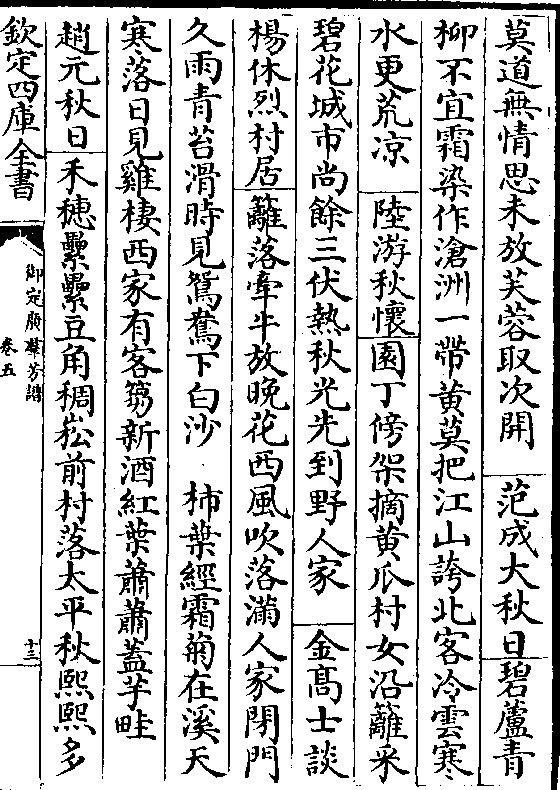 莫道無情思未放芙蓉取次開　范成大秋日碧蘆青
柳不宜霜染作滄洲一帶黄莫把江山誇北客冷雲寒
水更荒凉　陸游秋懷園丁傍架摘黄瓜村女沿籬采
碧花城市尚餘三伏熱秋光先到野人家　金髙士談
楊休烈村居籬落牽牛放晚花西風吹落滿人家閉門
久雨青苔滑時見鴛鴦下白沙　柿葉經霜菊在溪天
寒落日見雞棲西家有客篘新酒紅葉蕭蕭蓋芋畦
趙元秋日禾穗纍纍豆角稠崧前村落太平秋熙熙多
欽定四庫全書
御定廣羣芳譜
卷五
十三